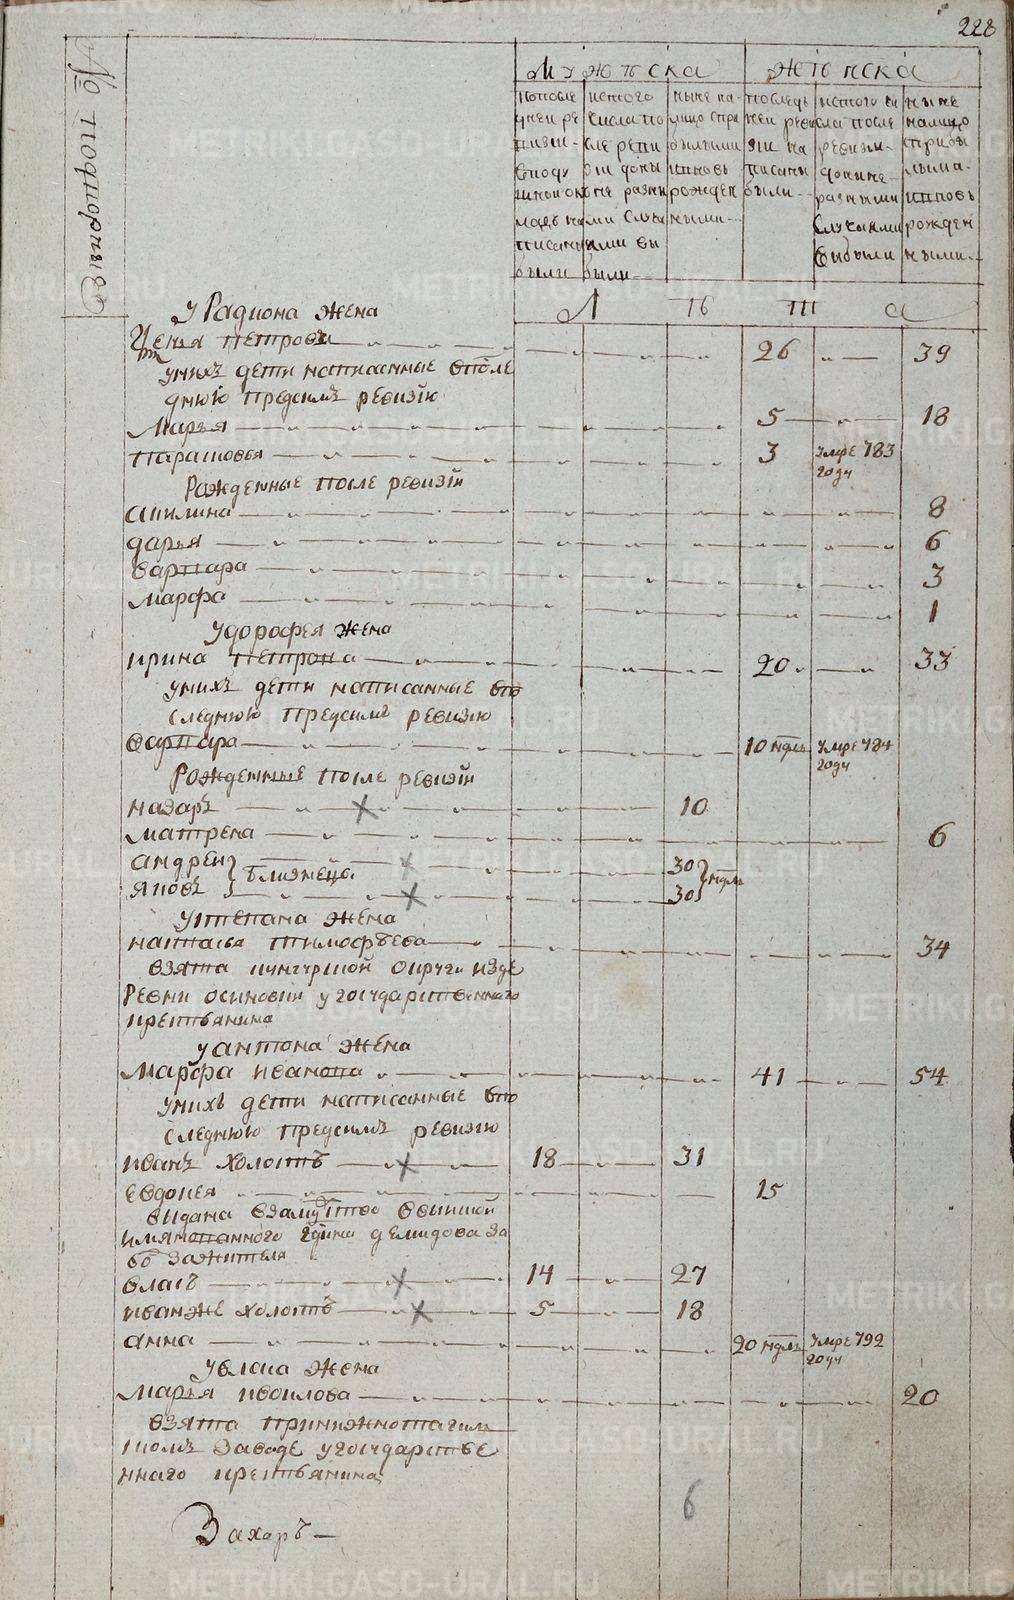 228
№ подворный
Мужеска
Женска
по последней ревизии сподушной окладъ написаны были
ис того числа по сле ревизии до ны не разны ми случа ями вы были
ныне на лицо спри былыми ивновь рожден ными
по последь ней реви зии на писаны были
ис того чи сла после ревизи доныне разными случаями выбыли
ныне налицо сприбы лыма ивновь рожден ными
Л Ѣ Т а
у Радиона жена
петрова 26 39
унихъ дети написанные впосле
днюю предсимъ ревизїю
Марья 5 18
Парасковья 3 умре 783 году
Рожденные после ревизїи
акилина 8
дарья 6
варвара 3
марфа 1
У дорофея жена
ирина петрова 20 33
унихъ дети написанные впо
следнюю предсимъ ревизїю
варвара 10 недль умре 784 году
Рожденные после ревизїи
назаръ 10
матрена 6
андрей близнецы 30 недль
яковъ 30
У степана жена
наталья тимофѣева 34
взята кунгурской округи изде
ревни осиновки у государственнаго
крестьянина
у антона жена
Марфа иванова 41 54
унихъ дети написанные впо
следнюю предсимъ ревизїю
иванъ холостъ 18 31
евдокея 15
выдана взамужство ввышей
имянованного гдина демидова за
зажителя
власъ 14 27
иванже холостъ 5 18
анна 20 недль умре 792 году
У власа жена
марья 20
взята принижнотагиль
скомъ заводе угосударстве
ннаго крестьянина
6
Захаръ
METRIKI.GASO-URAL.RU